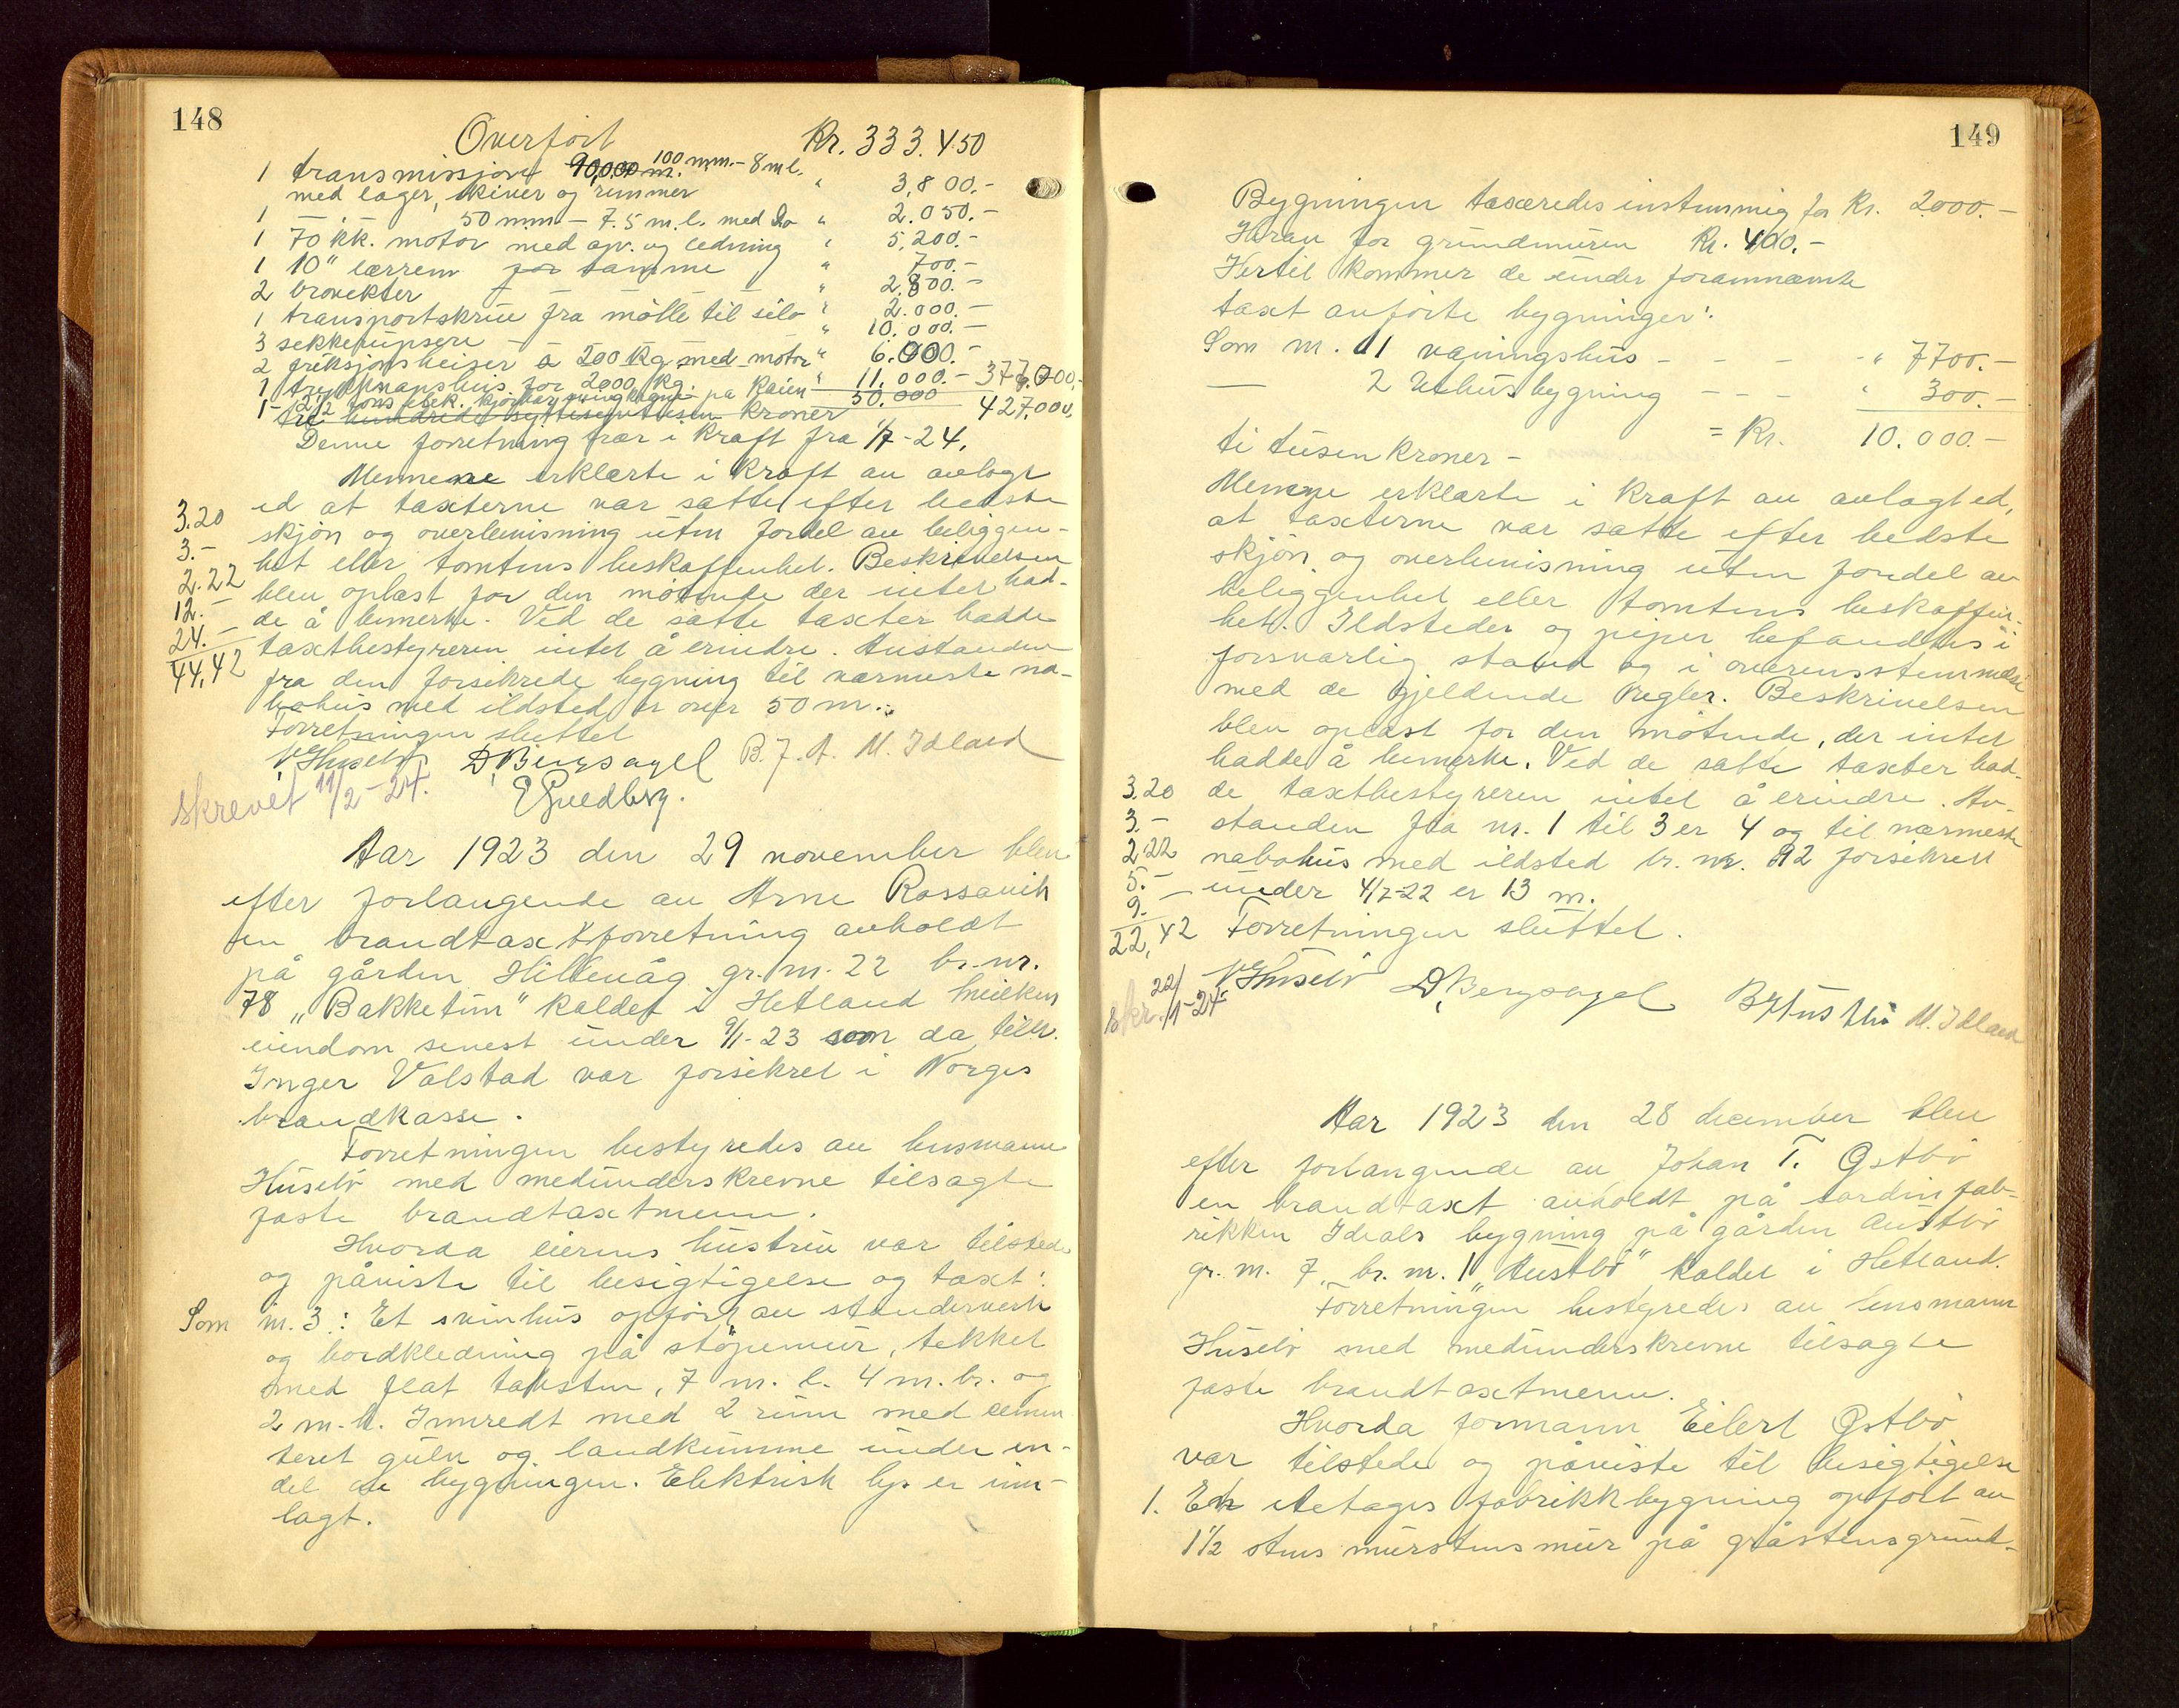 148
Overført Kr. 333.450
1 transmissjon 90,000 m. 100 mm. - 8 m l.
med lager, skiver og remmer " 3,800.-
1 — 50 m.m. - 7.5 m. l. med Do " 2.050.-
1 70 kk. motor med apv. og ledning " 5,200.-
1 10" lærrem for samme " 700.-
2 brovekter " 2.800.-
1 transportskrue fra mølle til silo " 2.000.-
3 sekkepipsere " 10.000.-
2 friksjonsheiser à 200 kg med motor " 6.000.-
1 for 2000 kg. " 11.000.- 377.000.-
1 - 2 1/2 tons elek. kjørbar svingkrane på kaien 50.000 427,000.
tre hundrede syttisyvtusen kroner
Denne forretning trær i kraft fra 1/7-24.
Mennene erklærte i kraft av avlagt
ed at taxterne var satte efter bedste
skjøn og overbevisning uten fordel av beliggen-
het eller tomtens beskaffenhet. Beskrivelsen
blev oplæst for den møtende der intet had-
de å bemerke. Ved de satte taxter hadde
taxtbestyreren intet å erindre. Avstanden
fra den forsikrede bygning til nærmeste na-
bohus med ildsted er over 50 m.
Forretningen sluttet
3.20
3.-
2.22
12.-
24.-
44,42
V Husebø D. Bergsagel B. J. A. M. Idland
E Svedberg.
skrevet 11/2-24.
Aar 1923 den 29 november blev
efter forlangende av Arne Rossavik
en brandtaxtforretning avholdt
på gården Hillevåg gr. nr. 22 br. nr.
78 "Bakketun" kaldet i Hetland hvilken
eiendom senest under 9/1-23 som da tilh.
Inger Valstad var forsikret i Norges
brandkasse.
Forretningen bestyredes av lensmann
Husebø med medunderskrevne tilsagte
faste brandtaxtmenn.
Hvorda eierens hustru var tilstede
og påviste til besigtigelse og taxt:
Som nr. 3: Et svinhus opført av stenderverk
og bordkledning på støpemur, tekket
med flat taksten, 7 m. l. 4 m. br. og
2 m. h. Innredt med 2 rum med cemen
teret gulv og landkumme under en-
del av bygningen. Elektrisk lys er inn-
lagt.
149
Bygningen taxeredes enstemmig for Kr. 2000.-
Herav for grundmuren Kr. 400.-
Hertil kommer de under forannævnte
taxt anførte bygninger:
Som nr. 1 våningshus - - - - " 7700.-
— 2 Uthusbygning - - - " 300.-
= Kr. 10.000.-
ti tusen kroner -
Mennene erklærte i kraft av avlagt ed,
at taxterne var satte efter bedste
skjøn og overbevisning uten fordel av
beliggenhet eller tomtens beskaffen-
het. Ildsteder og piper befandtes i
forsvarlig stand og i overensstemmelse
med de gjeldende regler. Beskrivelsen
blev oplæst for den møtende, der intet
hadde å bemerke. Ved de satte taxter had-
de taxtbestyreren intet å erindre. Av-
standen fra nr. 1 til 3 er 4 og til nærmeste
nabohus med ildsted br. nr. 92 forsikret
under 4/7-22 er 13 m.
Forretningen sluttet.
3.20
3.-
2.22
5.-
9.-
22,42
V Husebø D. Bergsagel B Husebø M. Idland
skr. 22/1-24.
Aar 1923 den 28 december blev
efter forlangende av Johan T. Østbø
en brandtaxt avholdt på sardinfab-
rikken Ideals bygning på gården Austbø
gr. nr. 7, br. nr. 1 "Austbø" kaldet i Hetland.
Forretningen bestyredes av lensmann
Husebø med medunderskrevne tilsagte
faste brandtaxtmenn.
Hvorda formann Eilert Østbø
var tilstede og påviste til besigtigelse
1. En etetages fabrikkbygning opført av
1 1/2 stens murstensmur på gråstensgrund-